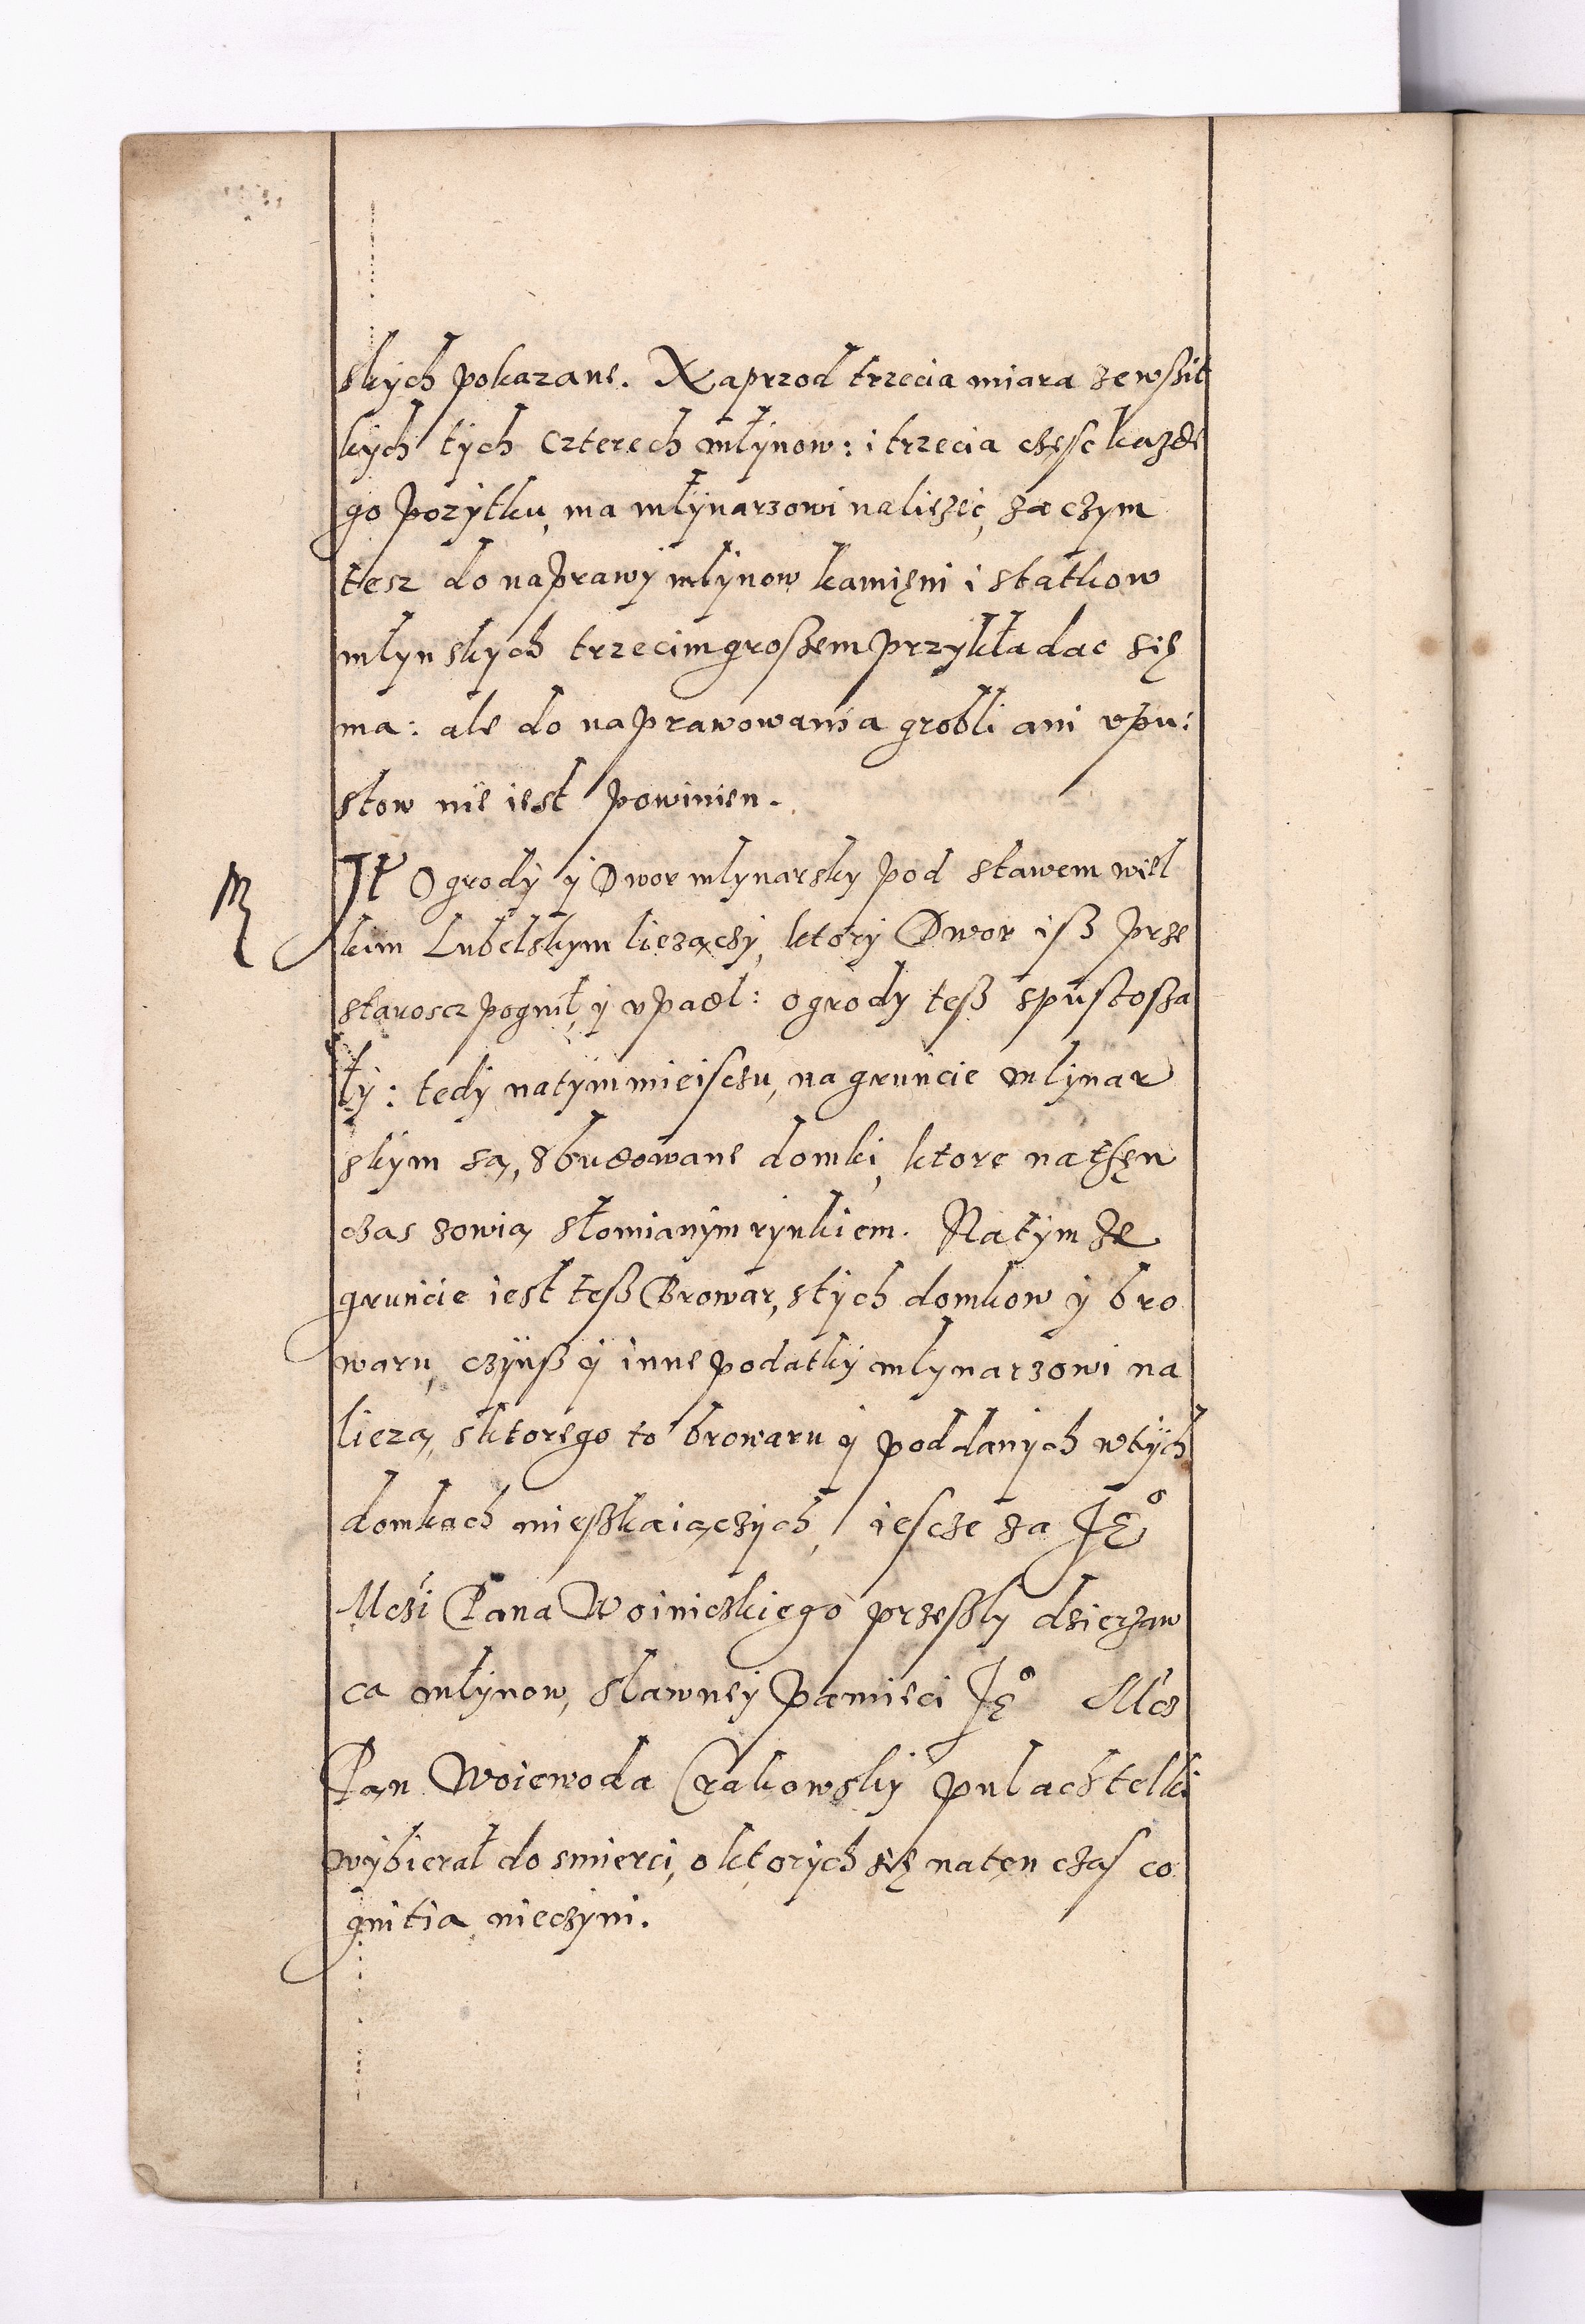 ských pokazane. Naprzod trzecia miara zewßit
kých tých Czterech młýnow: i trzecia część kazde
go pozýtku, ma młýnarzowi naliezeć, za czym
tesz do naprawý młýnow kamięni i statkow
młynskych trzecim großem przykładac się
ma: ale do naprawowania grobli ani vpu:
stow nie iest powinien.
Jt Ogrody ÿ Dwor mlynarsky pod stawem wiel
kim Lubelskym liezączÿ, ktorÿ Dwor iß prze
staroscz pognił, ÿ vpadl: ogrody teß spustosza
łÿ: tedy natÿm mieisczu, na gruncie mlÿnar
skÿm są, zbudowane domki, ktore nathęn
czas zowią słomianÿm rÿnkiem. Natÿm ze
gruncie iest teß Browar, stÿch domkow ÿ bro
waru, czÿnß ÿ inne podatkÿ młynarzowi na
lieza, sktorego to browaru ÿ poddanÿch wtÿch
domkach mießkaiączÿch, iescze za Jęo
Mczi Pana Woiniczkięgo przeßly dzierzaw
ca młÿnow, slawneÿ pamieci Jęo Mcz
Pan Woiewoda Crakowskÿ pulachtelki
wÿbierał do smierci, o ktorÿch się naten czas co
gnitia nieczÿni.